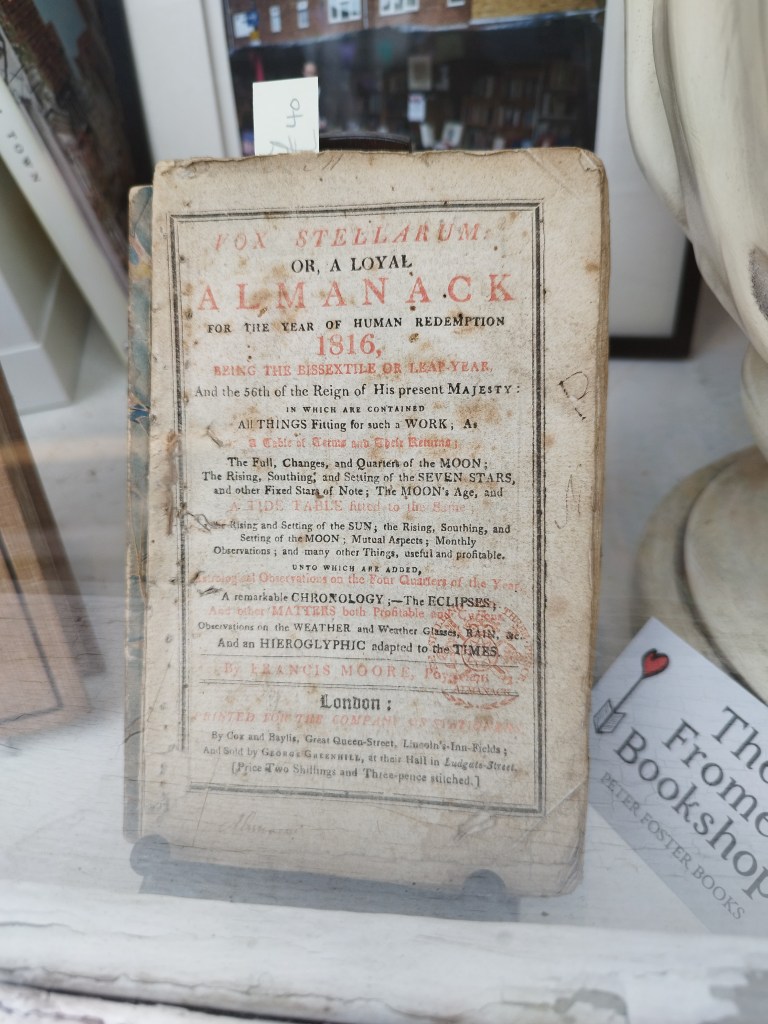 TOWN
£40
VOX STELLARUM:
OR, A LOYAL
ALMANACK
FOR THE YEAR OF HUMAN REDEMPTION
1816,
BEING THE BISSEXTILE OR LEAP-YEAR,
And the 56th of the Reign of His present MAJESTY:
IN WHICH ARE CONTAINED
All THINGS Fitting for such a WORK; As
A Table of Terms and their Returns;
The Full, Changes, and Quarters of the MOON;
The Rising, Southing, and Setting of the SEVEN STARS,
and other Fixed Stars of Note; The MOON's Age, and
A TIDE TABLE fitted to the Same;
The Rising and Setting of the SUN; the Rising, Southing, and
Setting of the MOON; Mutual Aspects; Monthly
Observations; and many other Things, useful and profitable.
UNTO WHICH ARE ADDED,
Astrological Observations on the Four Quarters of the Year,
A remarkable CHRONOLOGY;—The ECLIPSES;
And other MATTERS both Profitable and Curious.
Observations on the WEATHER and Weather Glasses, RAIN, &c
And an HIEROGLYPHIC adapted to the TIMES.
By FRANCIS MOORE, Physician
London:
PRINTED FOR THE COMPANY OF STATIONERS,
By Cox and Baylis, Great Queen-Street, Lincoln's-Inn-Fields;
And Sold by GEORGE GREENHILL, at their Hall in Ludgate-Street.
[Price Two Shillings and Three-pence stitched.]
The
Frome
Bookshop
PETER FOSTER BOOKS